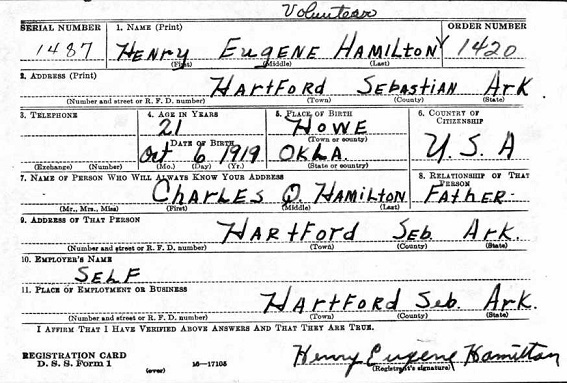 Volunteer
SERIAL NUMBER 1. NAME (Print) ORDER NUMBER
1487 HENRY EUGENE HAMILTON 1420
(First) (Middle) (Last)
2. ADDRESS (Print)
HARTFORD SEBASTIAN ARK
(Number and street or R. F. D. number) (Town) (County) (State)
3. TELEPHONE 4. AGE IN YEARS 5. PLACE OF BIRTH 6. COUNTRY OF CITIZENSHIP
21 HOWE
(Town or county)
DATE OF BIRTH
Oct 6 1919 OKLA. U. S. A
(Exchange) (Number) (Mo.) (Day) (Yr.) (State or country)
7. NAME OF PERSON WHO WILL ALWAYS KNOW YOUR ADDRESS 8. RELATIONSHIP OF THAT PERSON
CHARLES O. HAMILTON FATHER
(Mr., Mrs., Miss) (First) (Middle) (Last)
9. ADDRESS OF THAT PERSON
HARTFORD Seb. ARK.
(Number and street or R. F. D. number) (Town) (County) (State)
10. EMPLOYER'S NAME
SELF
11. PLACE OF EMPLOYMENT OR BUSINESS
HARTFORD Seb. ARK.
(Number and street or R. F. D. number) (Town) (County) (State)
I AFFIRM THAT I HAVE VERIFIED ABOVE ANSWERS AND THAT THEY ARE TRUE.
REGISTRATION CARD
D. S. S. Form 1 (over) 16—17105 Henry Eugene Hamilton
(Registrant's signature)